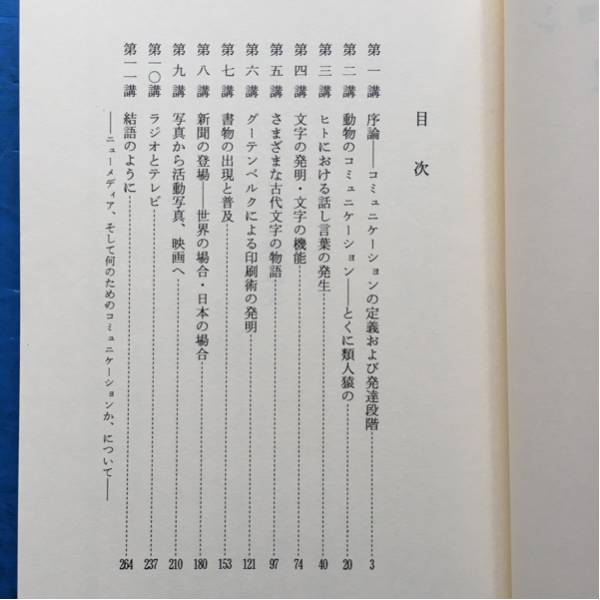 目次
第一講 序論――コミュニケーションの定義および発達段階 3
第二講 動物のコミュニケーション――とくに類人猿の 20
第三講 ヒトにおける話し言葉の発生 40
第四講 文字の発明・文字の機能 74
第五講 さまざまな古代文字の物語 97
第六講 グーテンベルクによる印刷術の発明 121
第七講 書物の出現と普及 153
第八講 新聞の登場――世界の場合・日本の場合 180
第九講 写真から活動写真、映画へ 210
第一〇講 ラジオとテレビ 237
第一一講 結語のように 264
――ニューメディア、そして何のためのコミュニケーションか、について――